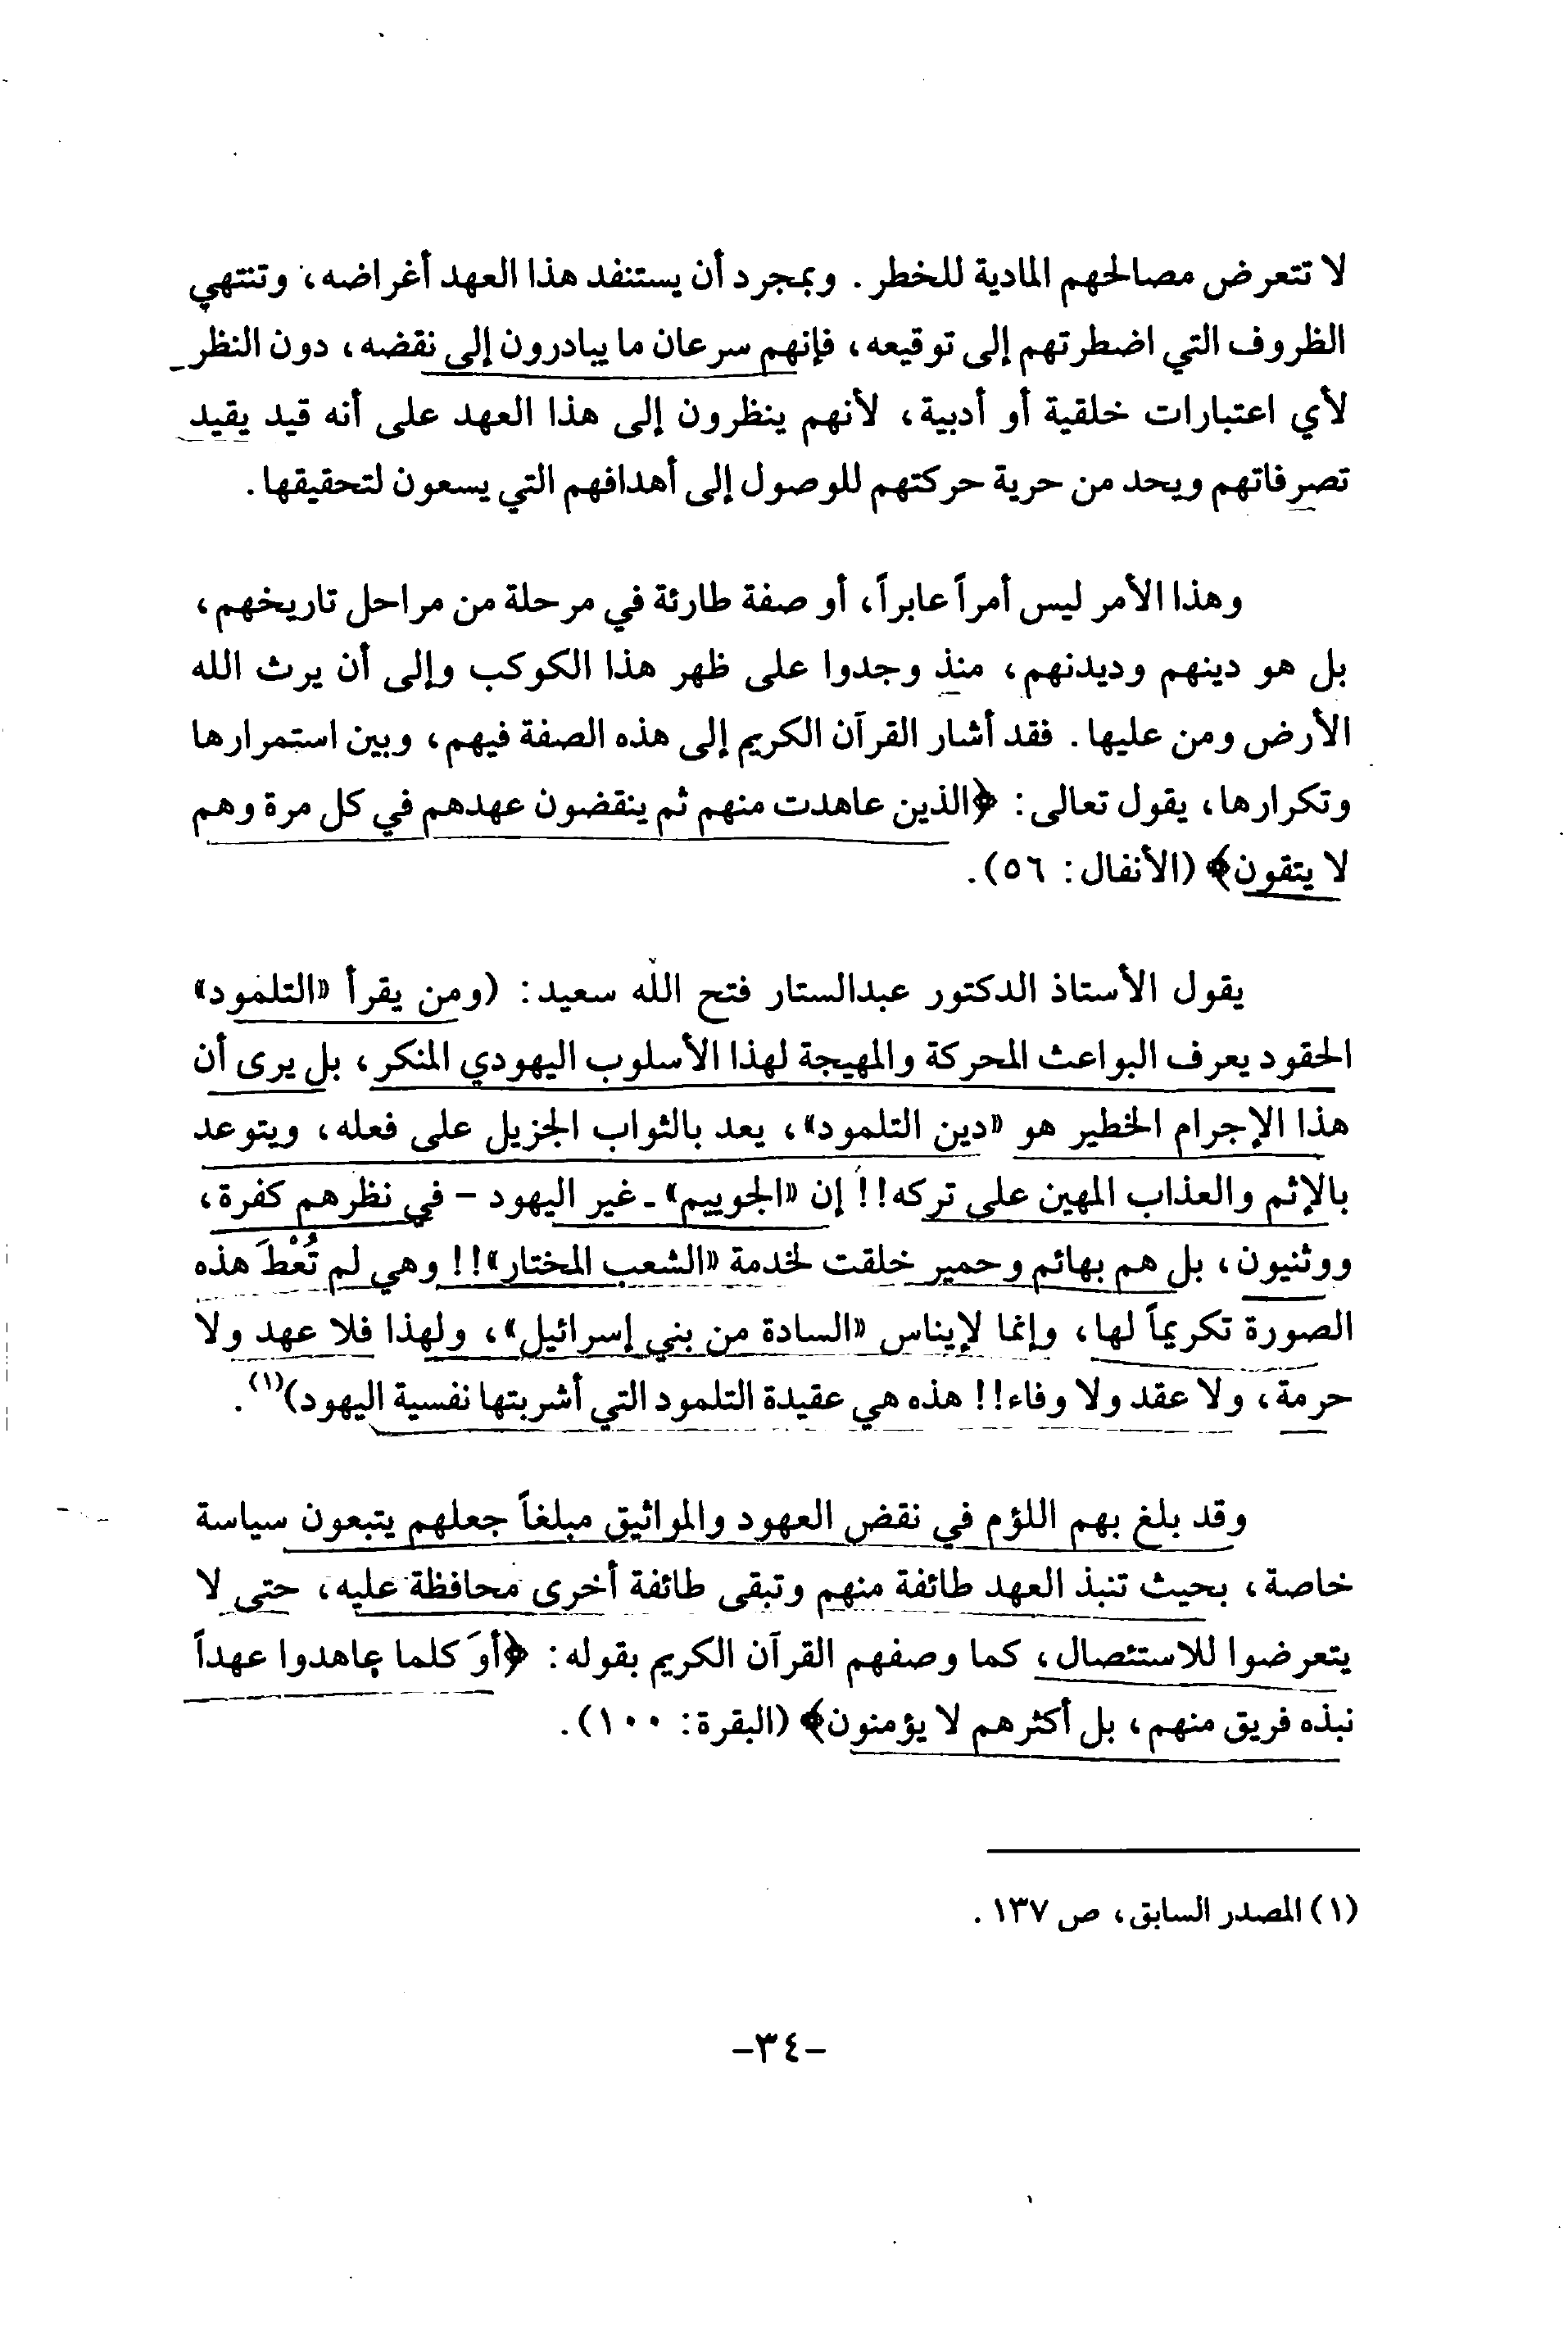 لا تتعرض مصالحهم المادية للخطر. وبمجرد أن يستنفد هذا العهد أغراضه، وتنتهي
الظروف التي اضطرتهم إلى توقيعه، فإنهم سرعان ما يبادرون إلى نقضه، دون النظر
لأي اعتبارات خلقية أو أدبية، لأنهم ينظرون إلى هذا العهد على أنه قيد يقيد
تصرفاتهم ويحد من حرية حركتهم للوصول إلى أهدافهم التي يسعون لتحقيقها.
وهذا الأمر ليس أمراً عابراً، أو صفة طارئة في مرحلة من مراحل تاريخهم،
بل هو دينهم وديدنهم، منذ وجدوا على ظهر هذا الكوكب وإلى أن يرث الله
الأرض ومن عليها. فقد أشار القرآن الكريم إلى هذه الصفة فيهم، وبين استمرارها
وتكرارها، يقول تعالى: ﴿الذين عاهدت منهم ثم ينقضون عهدهم في كل مرة وهم
لا يتقون﴾ (الأنفال: ٥٦).
يقول الأستاذ الدكتور عبدالستار فتح الله سعيد: (ومن يقرأ «التلمود»
الحقود يعرف البواعث المحركة والمهيجة لهذا الأسلوب اليهودي المنكر، بل يرى أن
هذا الإجرام الخطير هو «دين التلمود»، يعد بالثواب الجزيل على فعله، ويتوعد
بالإثم والعذاب المهين على تركه!! إن «الجوييم» - غير اليهود - في نظرهم كفرة،
ووثنيون، بل هم بهائم وحمير خلقت لخدمة «الشعب المختار»!! وهي لم تُعْطَ هذه
الصورة تكريماً لها، وإنما لإيناس «السادة من بني إسرائيل»، ولهذا فلا عهد ولا
حرمة، ولا عقد ولا وفاء!! هذه هي عقيدة التلمود التي أشربتها نفسية اليهود)(١).
وقد بلغ بهم اللؤم في نقض العهود والمواثيق مبلغاً جعلهم يتبعون سياسة
خاصة، بحيث تنبذ العهد طائفة منهم وتبقى طائفة أخرى محافظة عليه، حتى لا
يتعرضوا للاستئصال، كما وصفهم القرآن الكريم بقوله: ﴿أوَ كلما عاهدوا عهداً
نبذه فريق منهم، بل أكثرهم لا يؤمنون﴾ (البقرة: ١٠٠).
(١) المصدر السابق، ص ١٣٧.
-٣٤-